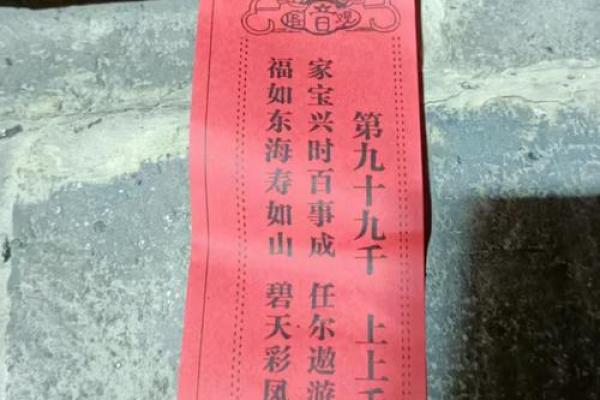 观音
第九十九千 上上千
家宝兴时百事成 任尔遨游
福如东海寿如山 碧天彩